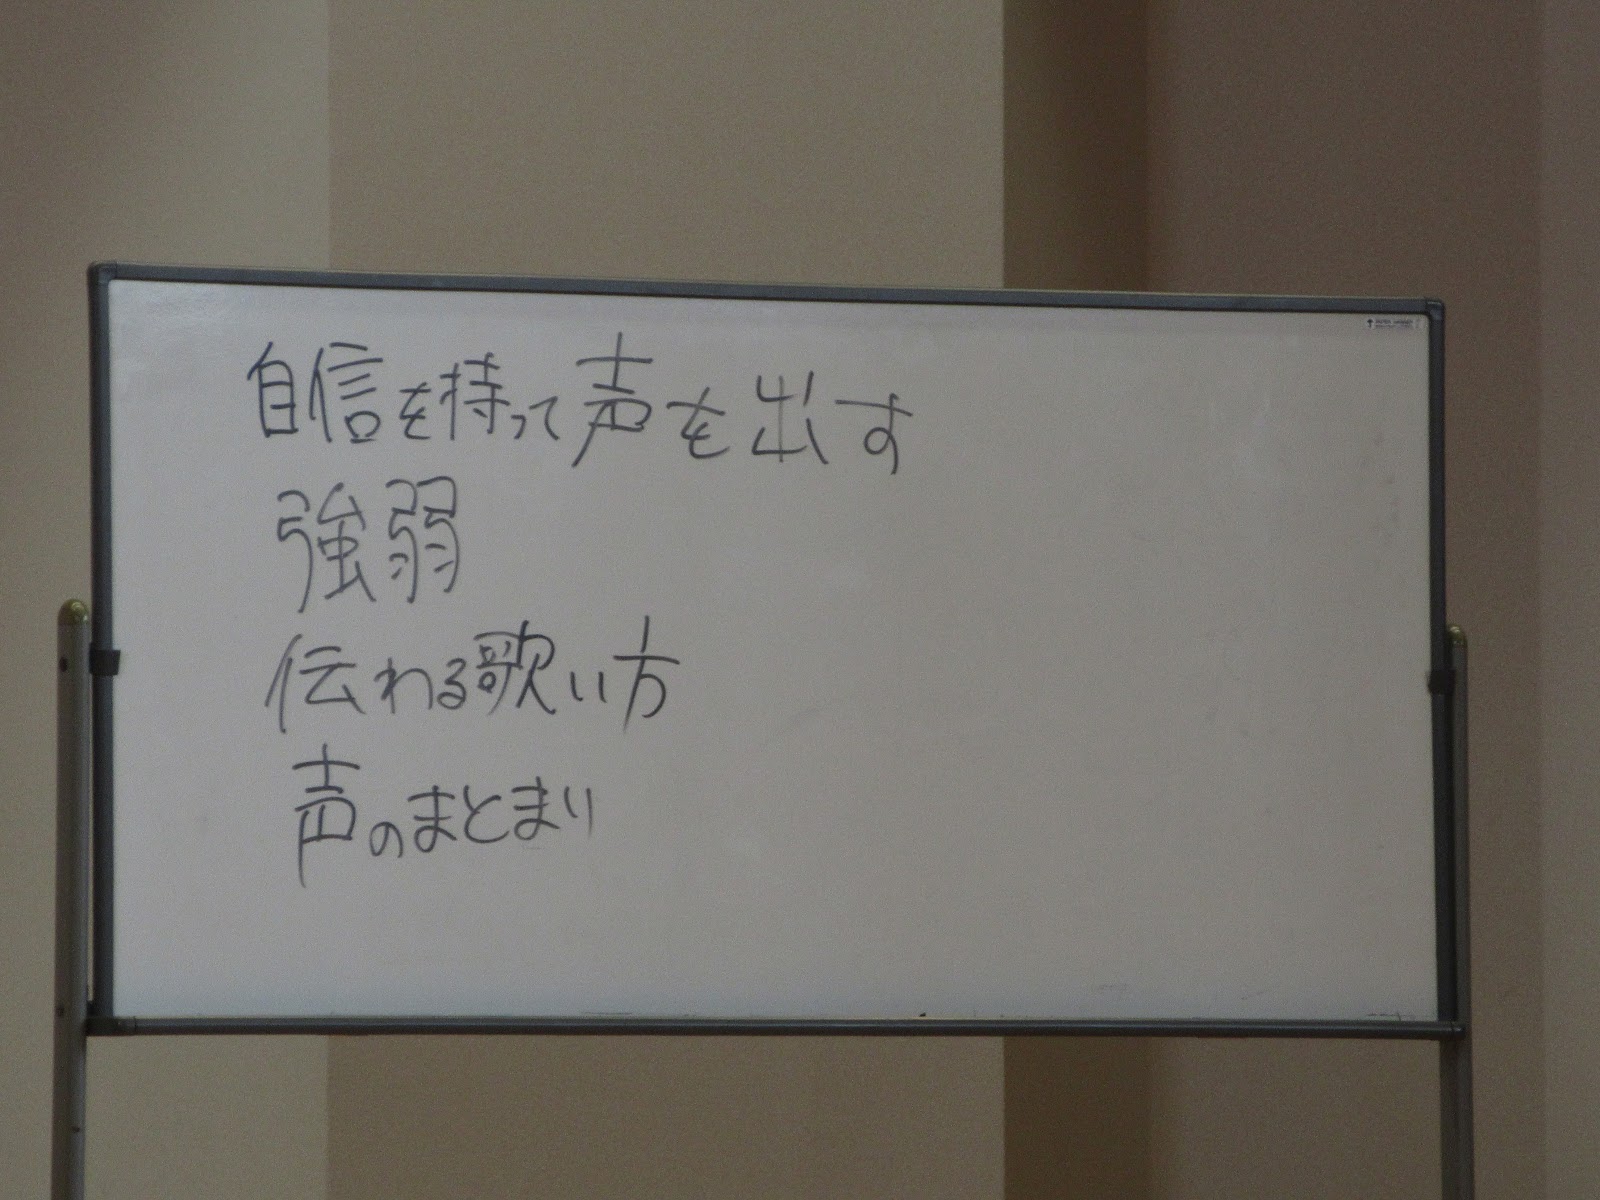 自信を持って声を出す
強弱
伝わる歌い方
声のまとまり